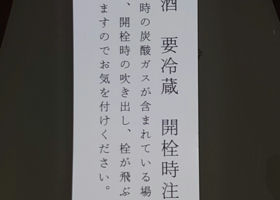 酒　要冷蔵　開栓時注
時の炭酸ガスが含まれている場
、開栓時の吹き出し、栓が飛ぶ
ますのでお気を付けください。